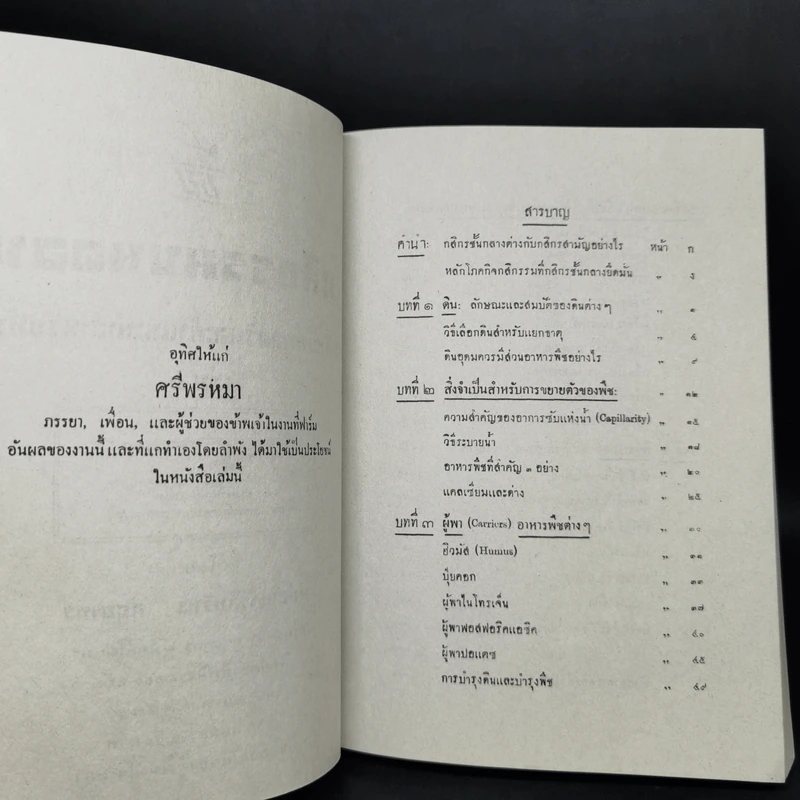 อุทิศให้แก่
ศรีพรหมา
ภรรยา, เพื่อน, และผู้ช่วยของข้าพเจ้าในงานที่ฟาร์ม
อันผลของงานนี้ และที่แกทำเองโดยลำพัง ได้มาใช้เป็นประโยชน์
ในหนังสือเล่มนี้
สารบาญ
คำนำ: กสิกรชั้นกลางต่างกับกสิกรสามัญอย่างไร หน้า ก
หลักโภคกิจกสิกรรมที่กสิกรชั้นกลางยึดมั่น " ง
บทที่ ๑ ดิน: ลักษณะและสมบัติของดินต่าง ๆ " ๑
วิธีเลือกดินสำหรับแยกธาตุ " ๕
ดินอุดมควรมีส่วนอาหารพืชอย่างไร " ๙
บทที่ ๒ สิ่งจำเป็นสำหรับการขยายตัวของพืช: " ๑๒
ความสำคัญของอาการซับแห่งน้ำ (Capillarity) " ๑๕
วิธีระบายน้ำ " ๑๘
อาหารพืชที่สำคัญ ๓ อย่าง " ๒๐
แคลเซียมและด่าง " ๒๕
บทที่ ๓ ผู้พา (Carriers) อาหารพืชต่าง ๆ " ๓๐
ฮิวมัส (Humus) " ๓๑
ปุ๋ยคอก " ๓๓
ผู้พาไนโทรเจ็น " ๓๗
ผู้พาฟอสฟอริคแอซิค " ๔๐
ผู้พาปอแตซ " ๔๕
การบำรุงดินและบำรุงพืช " ๔๙